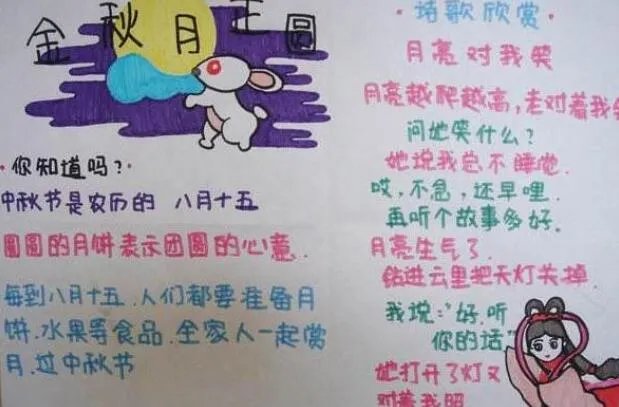 金秋月正圆
·你知道吗？·
中秋节是农历的 八月十五
圆圆的月饼表示团圆的心意.
每到八月十五.人们都要准备月
饼.水果等食品.全家人一起赏
月.过中秋节
·诗歌欣赏·
月亮对我笑
月亮越爬越高，老对着我
问她笑什么？
她说我总不睡觉.
哎，不急，还早哩.
再听个故事多好.
月亮生气了.
钻进云里把天灯关掉.
我说：“好.听
你的话”
她打开了灯又
对着我